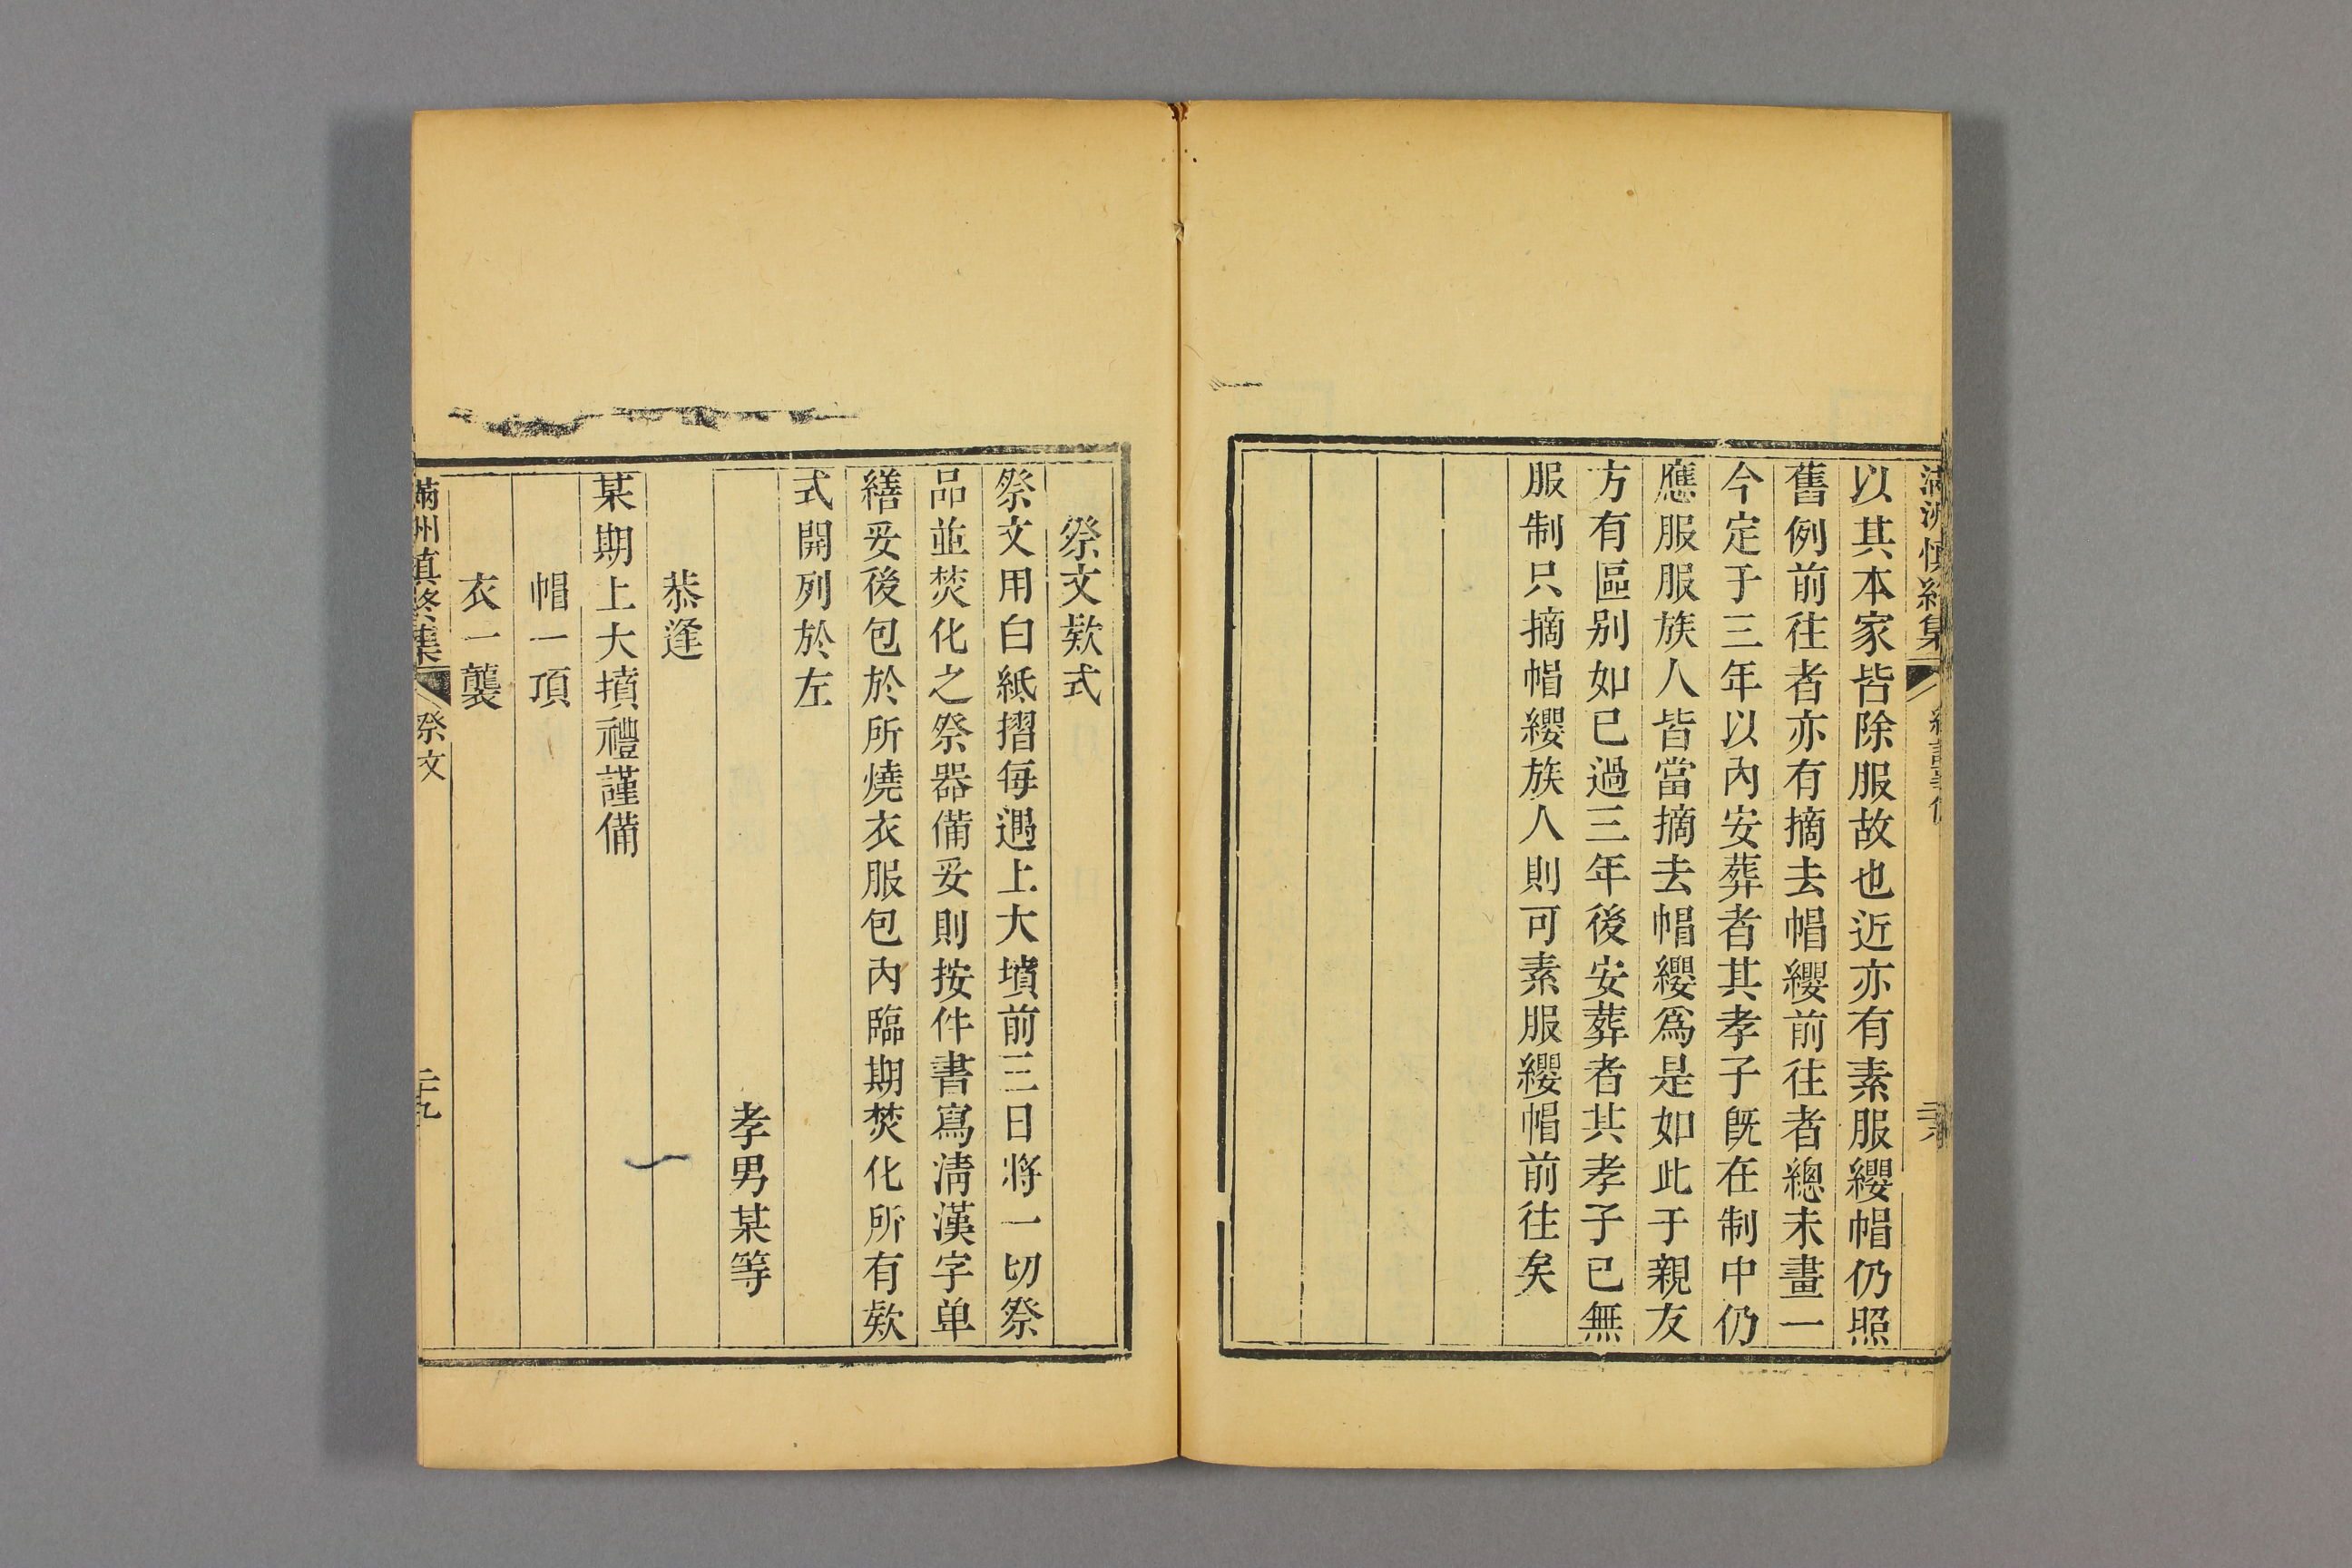 以其本家皆除服故也近亦有素服纓帽仍照
舊例前往者亦有摘去帽纓前往者總未畫一
今定于三年以內安葬者其孝子旣在制中仍
應服服族人皆當摘去帽纓爲是如此于親友
方有區别如已過三年後安葬者其孝子已無
服制只摘帽纓族人則可素服纓帽前往矣
祭文欵式
祭文用白紙摺每遇上大墳前三日將一切祭
品並焚化之祭器備妥則按件書寫淸漢字单
繕妥後包於所燒衣服包內臨期焚化所有欵
式開列於左
孝男某等
恭逢
某期上大墳禮謹備
帽一頂
衣一襲
滿州慎終集 祭文 二十九